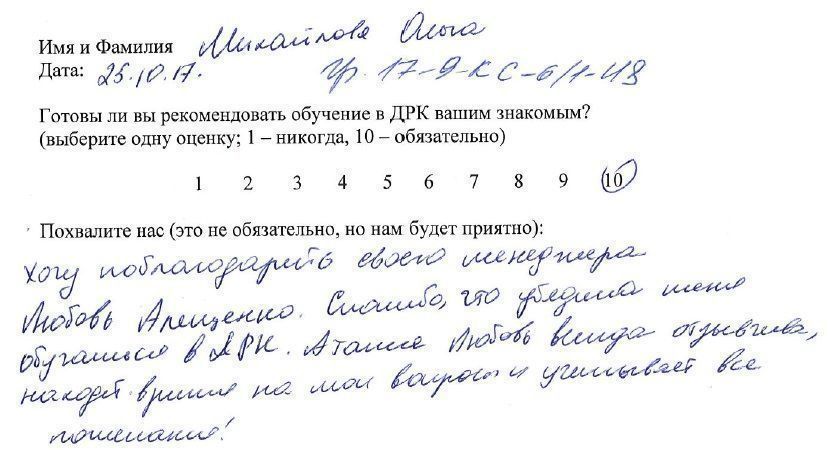 Имя и Фамилия Михайлова Ольга
Дата: 25.10.17. Гр. 17-9-КС-6/1-ИЗ
Готовы ли вы рекомендовать обучение в ДРК вашим знакомым?
(выберите одну оценку; 1 – никогда, 10 – обязательно)
1 2 3 4 5 6 7 8 9 10
Похвалите нас (это не обязательно, но нам будет приятно):
Хочу поблагодарить своего менеджера
Любовь Алещенко. Спасибо, что убедила меня
обучаться в ДРК. А также Любовь всегда отзывчива,
находит время на мои вопросы и учитывает все
пожелания!